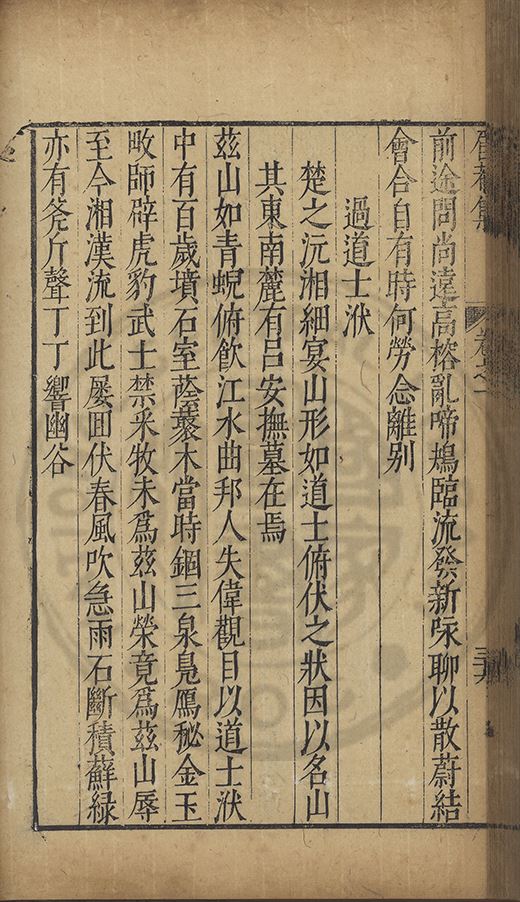 卷之一
前途問尚遠高榕亂啼鴂臨流發新咏聊以散蔚結
會合自有時何勞念離别
過道士洑
楚之沅湘細宴山形如道士俯伏之狀因以名山
其東南麓有吕安撫墓在焉
兹山如青蜺俯飲江水曲邦人失偉觀目以道士洑
中有百歲墳石室蔭蓑木當時錮三泉鳧鴈秘金玉
畋師辟虎豹武士禁采牧未爲兹山榮竟爲兹山辱
至今湘漢流到此屡囬伏春風吹急雨石斷積蘚緑
亦有斧斤聲丁丁響幽谷